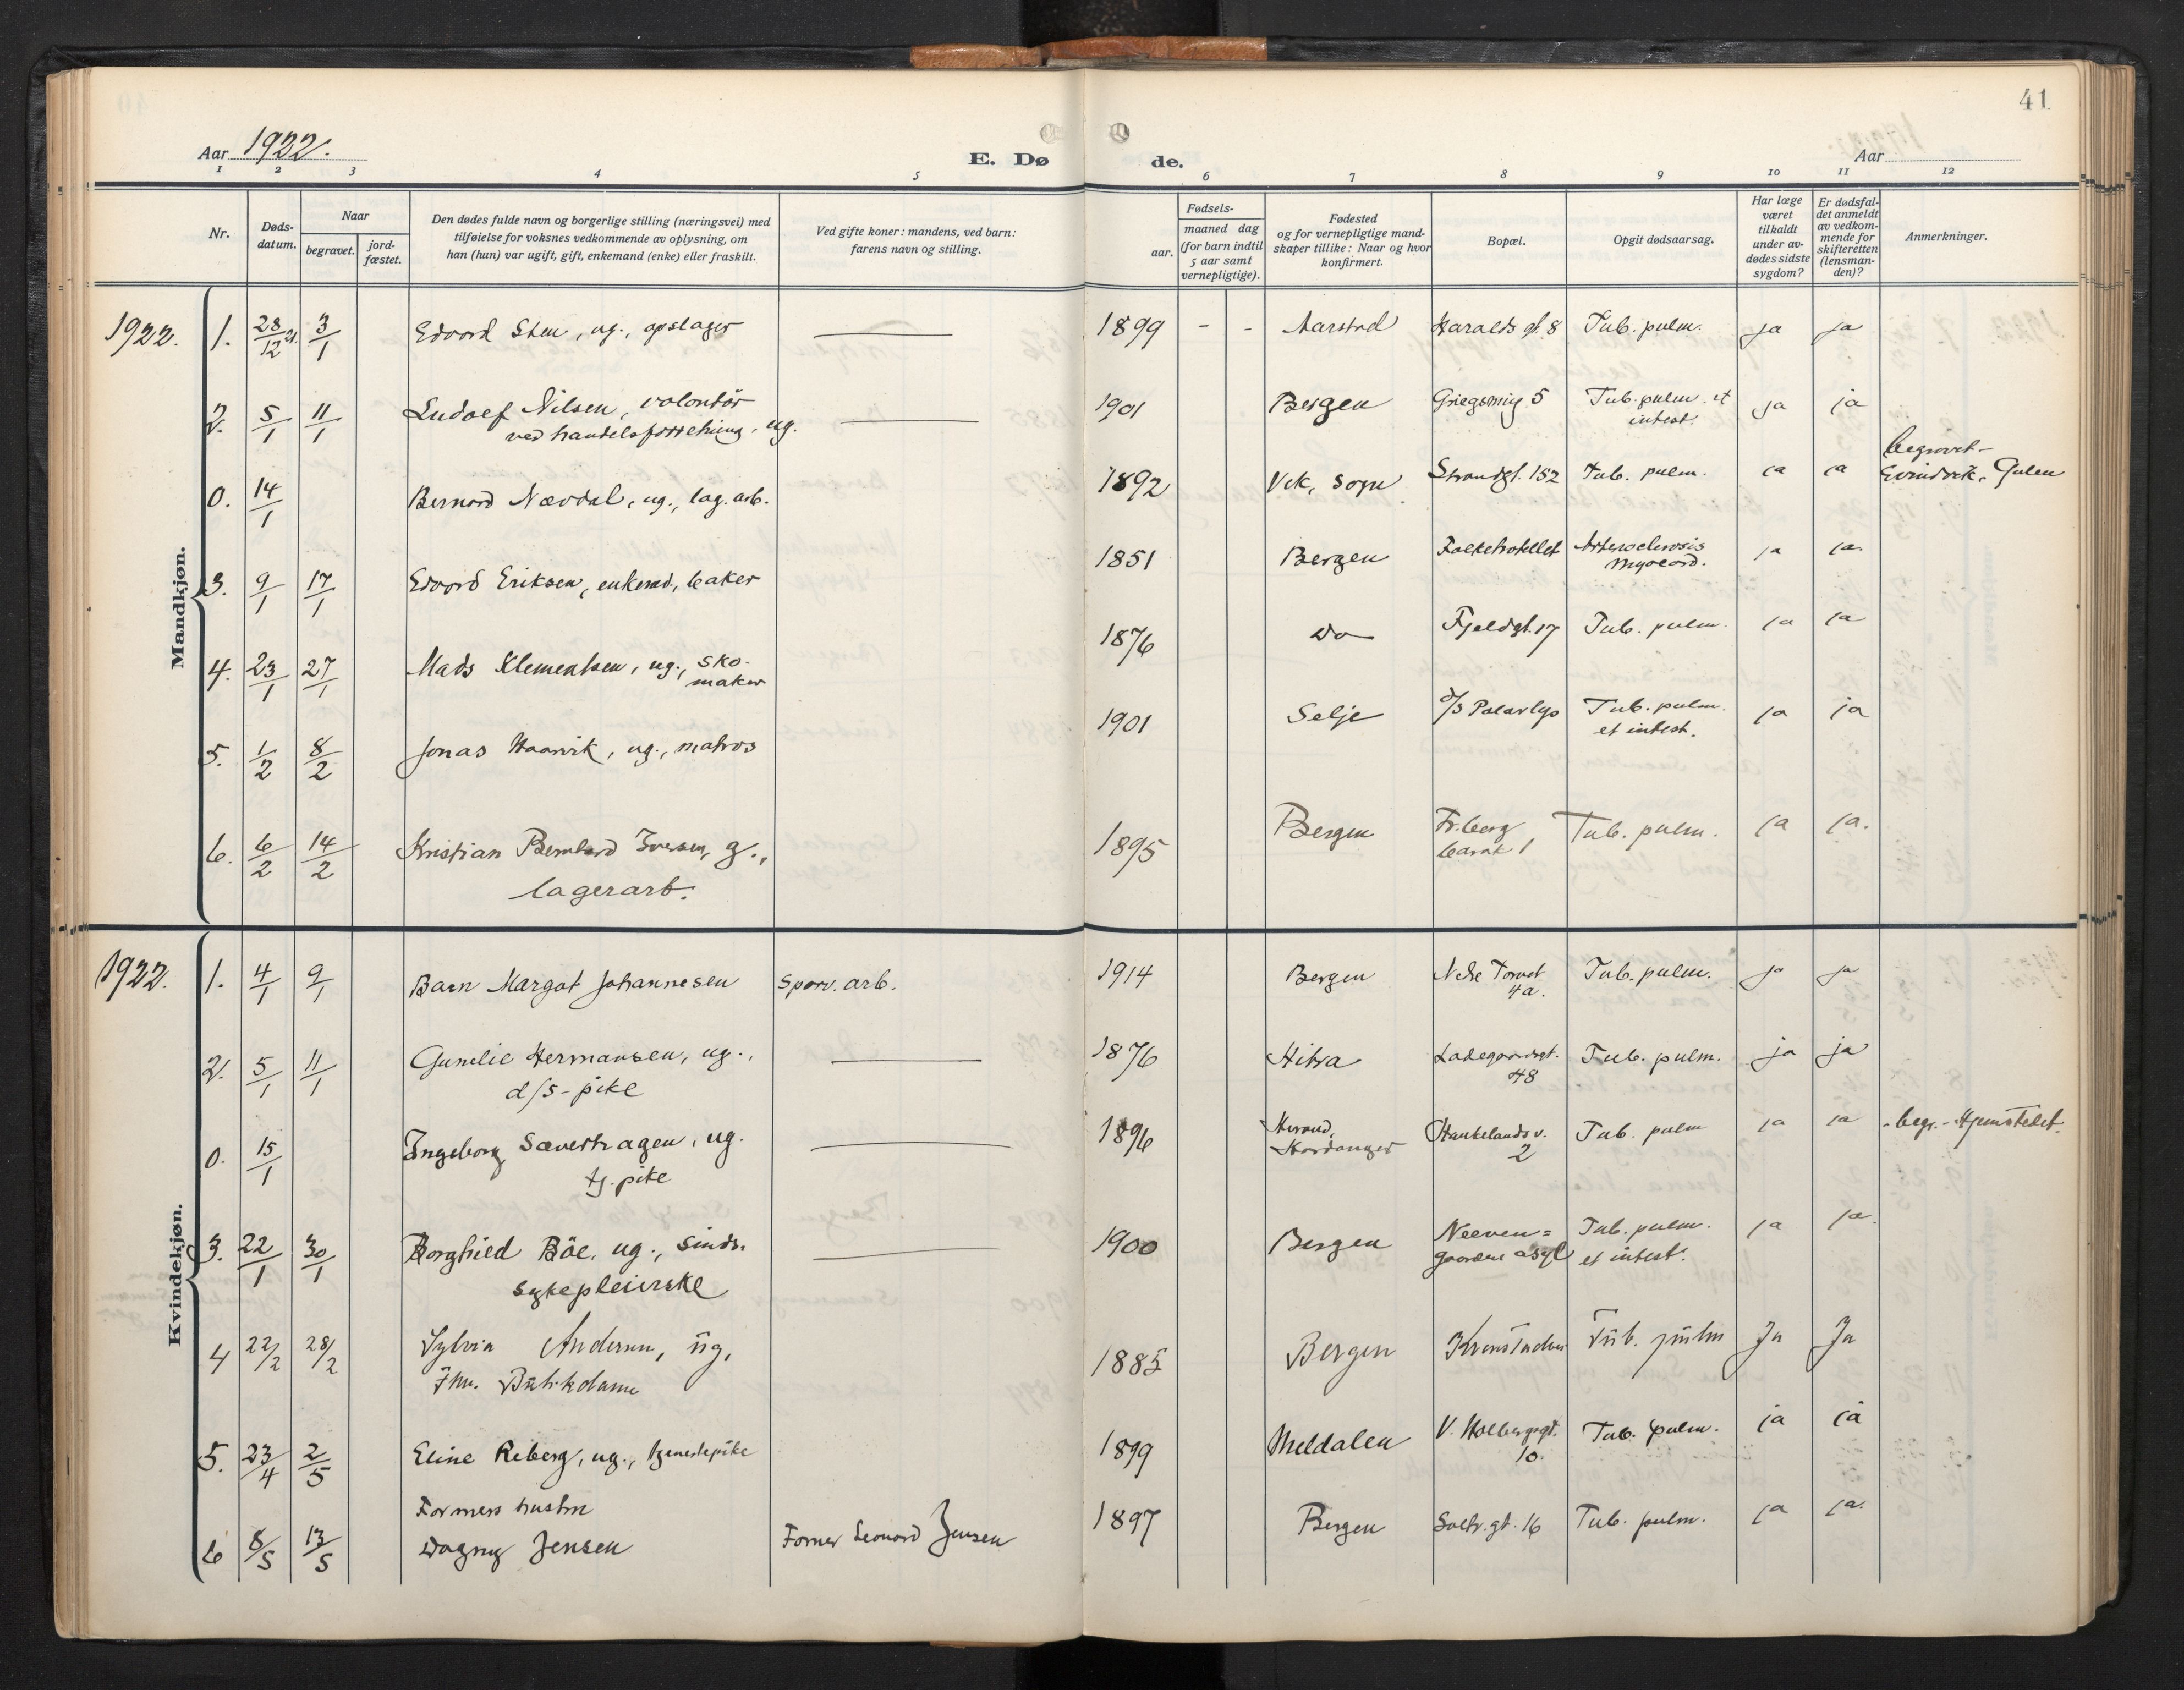 41.
Aar 1922. E. Dø de. Aar
1 2 3 4 5 6 7 8 9 10 11 12
Nr.
Døds-
datum.
Naar
begravet.
jord-
fæstet.
Den dødes fulde navn og borgerlige stilling (næringsvei) med
tilføielse for voksnes vedkommende av oplysning, om
han (hun) var ugift, gift, enkemand (enke) eller fraskilt.
Ved gifte koner: mandens, ved barn:
farens navn og stilling.
aar.
Fødsels-
maaned dag
(for barn indtil
5 aar samt
vernepligtige).
Fødested
og for vernepligtige mand-
skaper tillike: Naar og hvor
konfirmert.
Bopæl.
Opgit dødsaarsag.
Har læge
været
tilkaldt
under av-
dødes sidste
sygdom?
Er dødsfal-
det anmeldt
av vedkom-
mende for
skifteretten
(lensman-
den)?
Anmerkninger.
Mandkjøn.
1922. 1. 28/12 21. 3/1 Edvard Sten, ug., opslager 1899 - - Aarstad Haralds gt. 8 Tub. pulm. ja ja
2. 5/1 11/1 Ludolf Nilsen, volontør
ved handelsforretning, ug. 1901 Bergen Griegsmug 5 Tub. pulm. et
intest. ja ja
0. 14/1 Bernard Nævdal, ug., lag. arb. 1892 Vik, Sogn Strandgt. 152 Tub. pulm. ja ja begravet -
Evindvik, Gulen
3. 9/1 17/1 Edvard Eriksen, enkemd, baker 1851 Bergen Folkehotellet Arterosclerosis
Myocard. ja ja
4. 23/1 27/1 Mads Klementsen, ug., sko-
maker 1876 do Fjeldgt. 17 Tub. pulm. ja ja
5. 1/2 8/2 Jonas Haarvik, ug., matros 1901 Selje d/s Polarlys Tub. pulm.
et intest. ja ja
6. 6/2 14/2 Kristian Bernhard Iversen, g.,
lagerarb. 1895 Bergen Fr.berg
barak 1 Tub. pulm. ja ja.
Kvindekjøn.
1922. 1. 4/1 9/1 Barn Margot Johannesen Sporv. arb. 1914 Bergen Nedre Torvet
4a. Tub. pulm. ja ja
2. 5/1 11/1 Gunelie Hermansen, ug.,
d/s-pike 1876 Hitra Ladegaardsgt.
48 Tub. pulm. ja ja
0. 15/1 Ingeborg Sævertragen, ug.
tj. pike 1896 Herand,
Hardanger Haukelandsv.
2 Tub. pulm ja ja - begr. - Hjemstedet.
3. 22/1 30/1 Borghild Böe, ug., sinds-
sykepleierske 1900 Bergen Neeven=
gaardens asyl Tub. pulm.
et intest. ja ja.
4 22/2 28/2 Sylvia Andersen, ug,
Butikdame 1885 Bergen Tub. pulm Ja Ja
5. 23/4 2/5 Eline Reberg, ug., tjenestepike 1899 Meldalen V. Holbergsgt.
10. Tub. pulm. ja ja
6 8/5 13/5 Formers hustru
Dagny Jensen Former Leonard Jensen 1897 Bergen Saltv.gt. 16 Tub. pulm. ja ja.